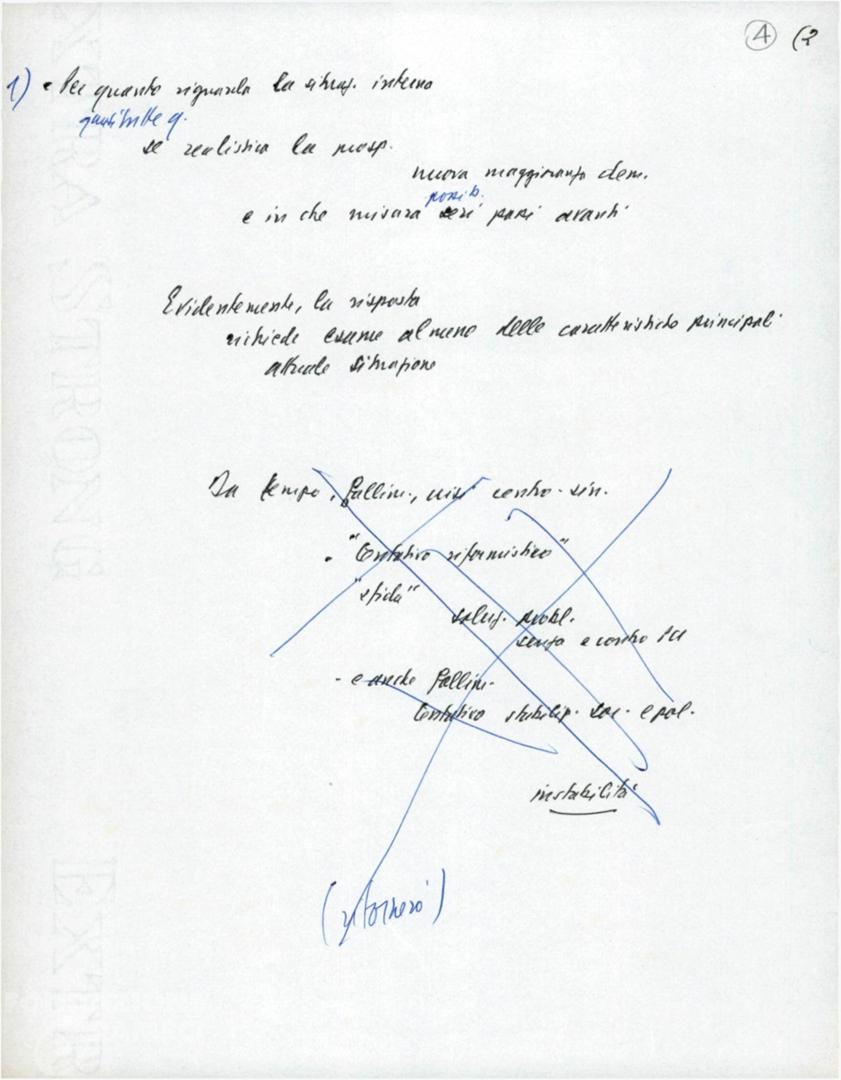 4 (2
1) • Per quanto riguarda la situaz. interna
se realistica la prosp.
nuova maggioranza dem.
possib.
e in che misura seri passi avanti
Evidentemente, la risposta
richiede esame almeno delle caratteristiche principali
attuale situazione
Da tempo, fallim., crisi centro-sin.
• "tentativo riformistico"
"sfida"
soluz. probl.
senza e contro PCI
- e anche fallim.
tentativo stabiliz. soc. e pol.
instabilità
(ritornerò)
EXTRA STRONG
EXTR